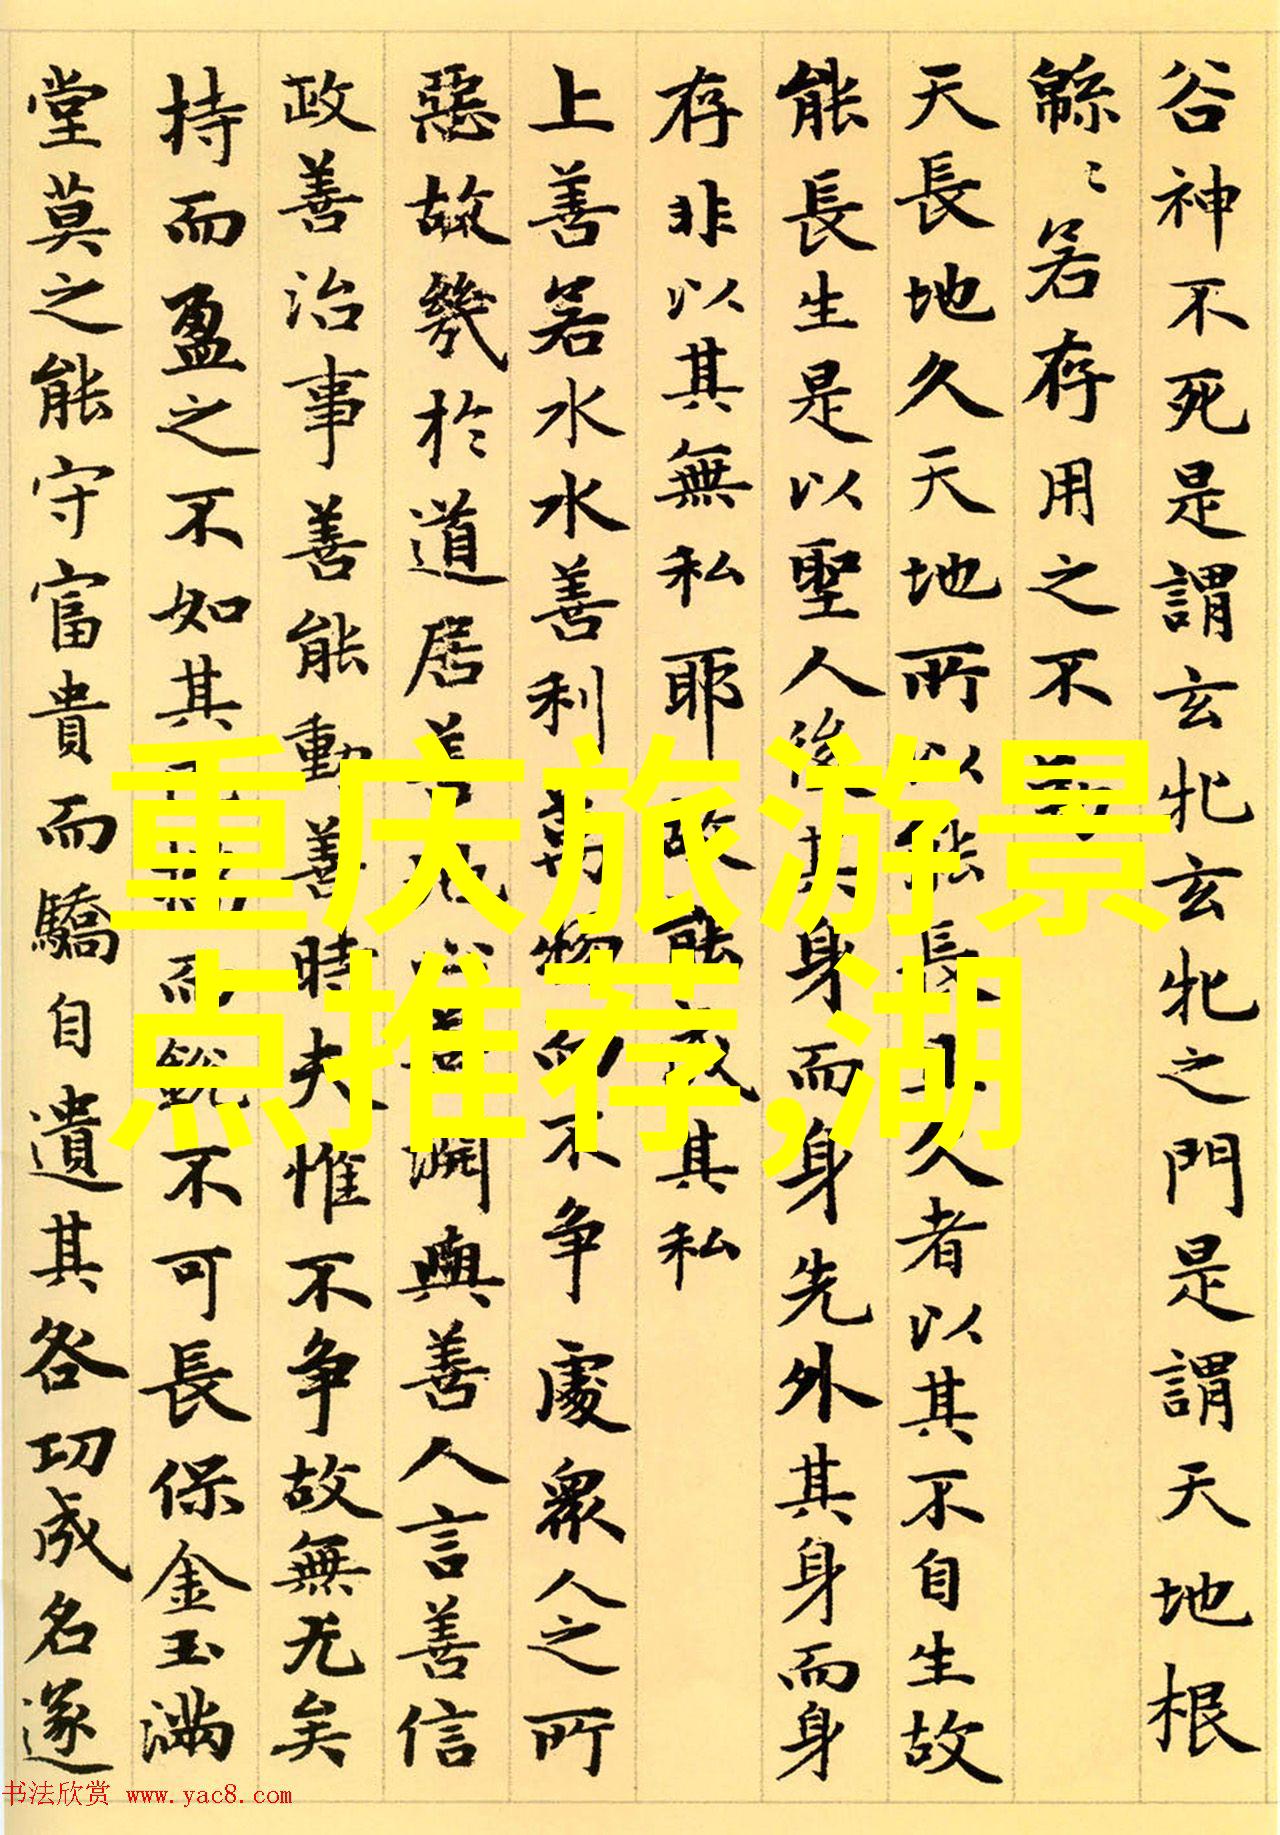 谷神不死是謂玄牝玄牝之門是謂天地根
緜〻若存用之不勤
天長地久天地所以能長且久者以其不自生故
能長生是以聖人後其身而身先外其身而身
存非以其無私耶故能成其私
上善若水水善利萬物而不争處衆人之所
惡故幾於道居善地心善淵與善人言善信
政善治事善能動善時夫惟不争故無尤矣
持而盈之不如其已揣而銳不可長保金玉滿
堂莫之能守富貴而驕自遺其咎功成名遂
重庆旅游景
点推荐,湖
书法欣赏 www.yac8.com